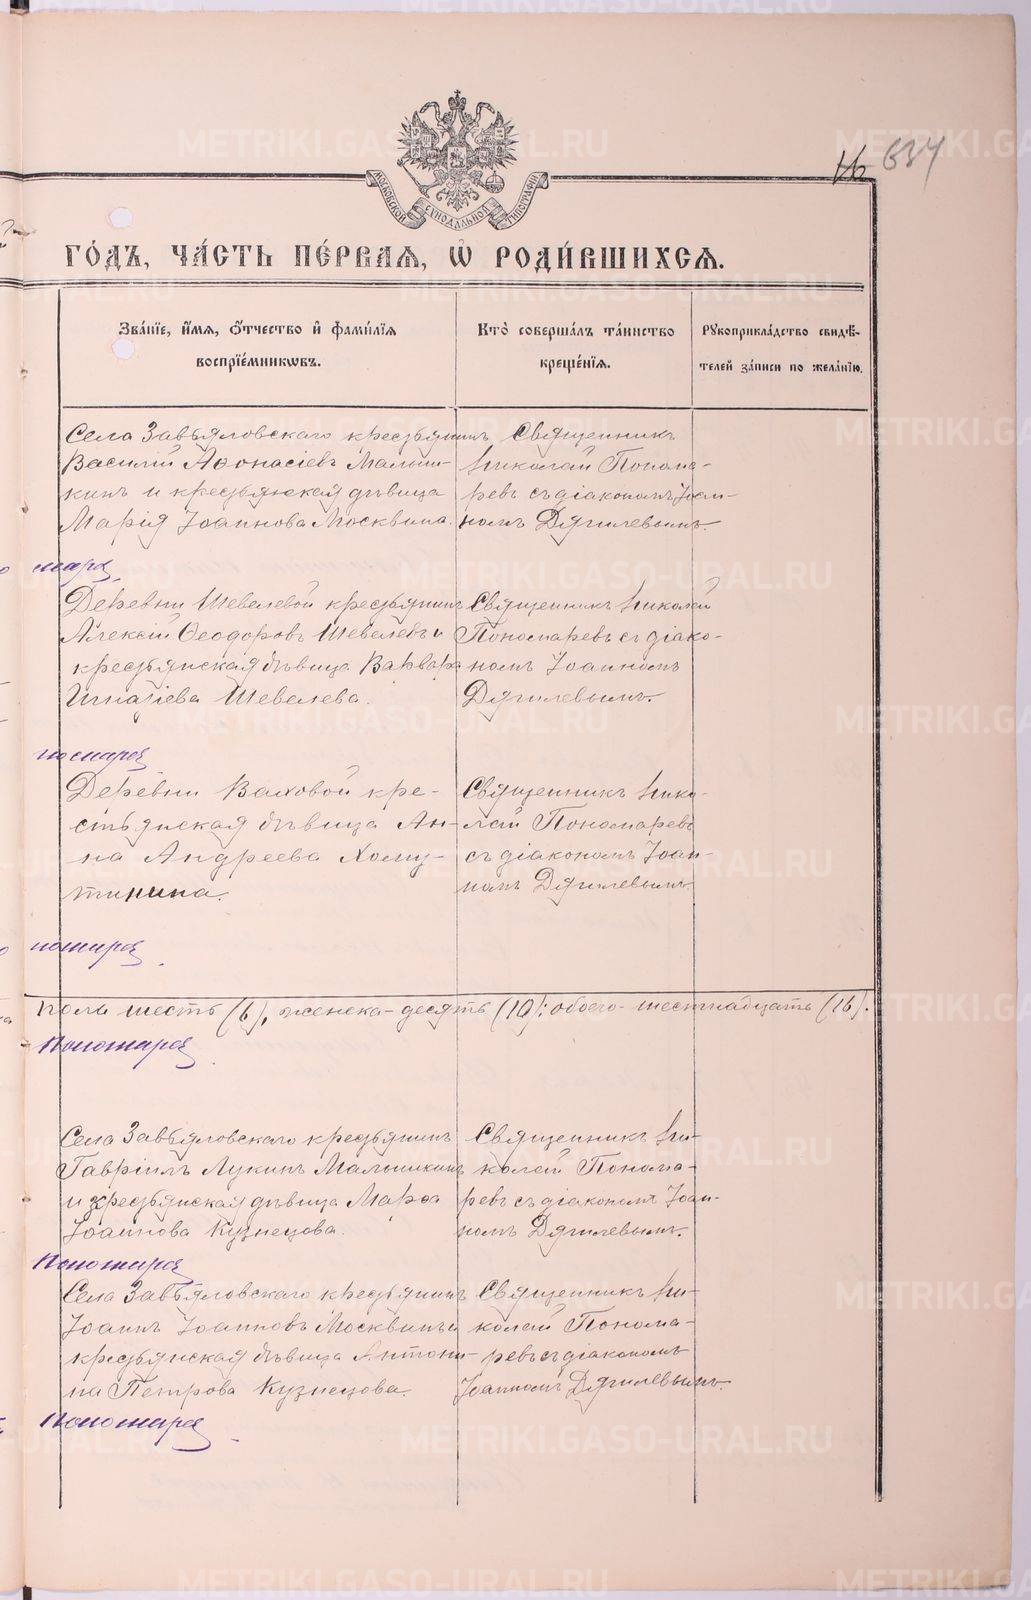 16 637
МОСКОВСКОЙ СѴНОДАЛЬНОЙ ТИПОГРАФІИ
ГО́ДЪ, ЧА́СТЬ ПЕ́РВАЯ, Ѡ҆ РОДИ́ВШИХСЯ.
Зва́нїе, и҆́мя, ѻ҆́тчество и҆ фами́лїя
воспрїе́мникѡвъ.
Кто̀ соверша́лъ та́инство
креще́нїя.
Рꙋкоприкла́дство свидѣ́-
телей за́писи по жела́нїю.
Села Завьяловскаго крестьянинъ
Василій Аѳонасіевъ Малыш-
кинъ и крестьянская дѣвица
Марія Іоаннова Москвина.
Священникъ
Николай Понома-
ревъ съ діакономъ Іоан-
номъ Дягилевымъ.
Деревни Шевелевой крестьянинъ
Алексій Ѳеодоровъ Шевелевъ и
крестьянская дѣвица Варвара
Игнатіева Шевелева.
Священникъ Николай
Пономаревъ съ діако-
номъ Іоанномъ
Дягилевымъ.
Деревни Ваховой кре-
стьянская дѣвица Ан-
на Андреева Хому-
тинина.
Священникъ Нико-
лай Пономаревъ
съ діакономъ Іоан-
номъ Дягилевымъ.
пола шесть (6), женска-десять (10); обоего-шестнадцать (16).
Пономарев
Села Завьяловскаго крестьянинъ
Гавріилъ Лукинъ Малышкинъ
и крестьянская дѣвица Марѳа
Іоаннова Кузнецова.
Священникъ Ни-
колай Понома-
ревъ съ діакономъ Іоан-
номъ Дягилевымъ.
Пономарев
Села Завьяловскаго крестьянинъ
Іоаннъ Іоанновъ Москвинъ и
крестьянская дѣвица Антони-
на Петрова Кузнецова.
Священникъ Ни-
колай Понома-
ревъ съ діакономъ
Іоанномъ Дягилевымъ.
Пономарев
METRIKI.GASO-URAL.RU